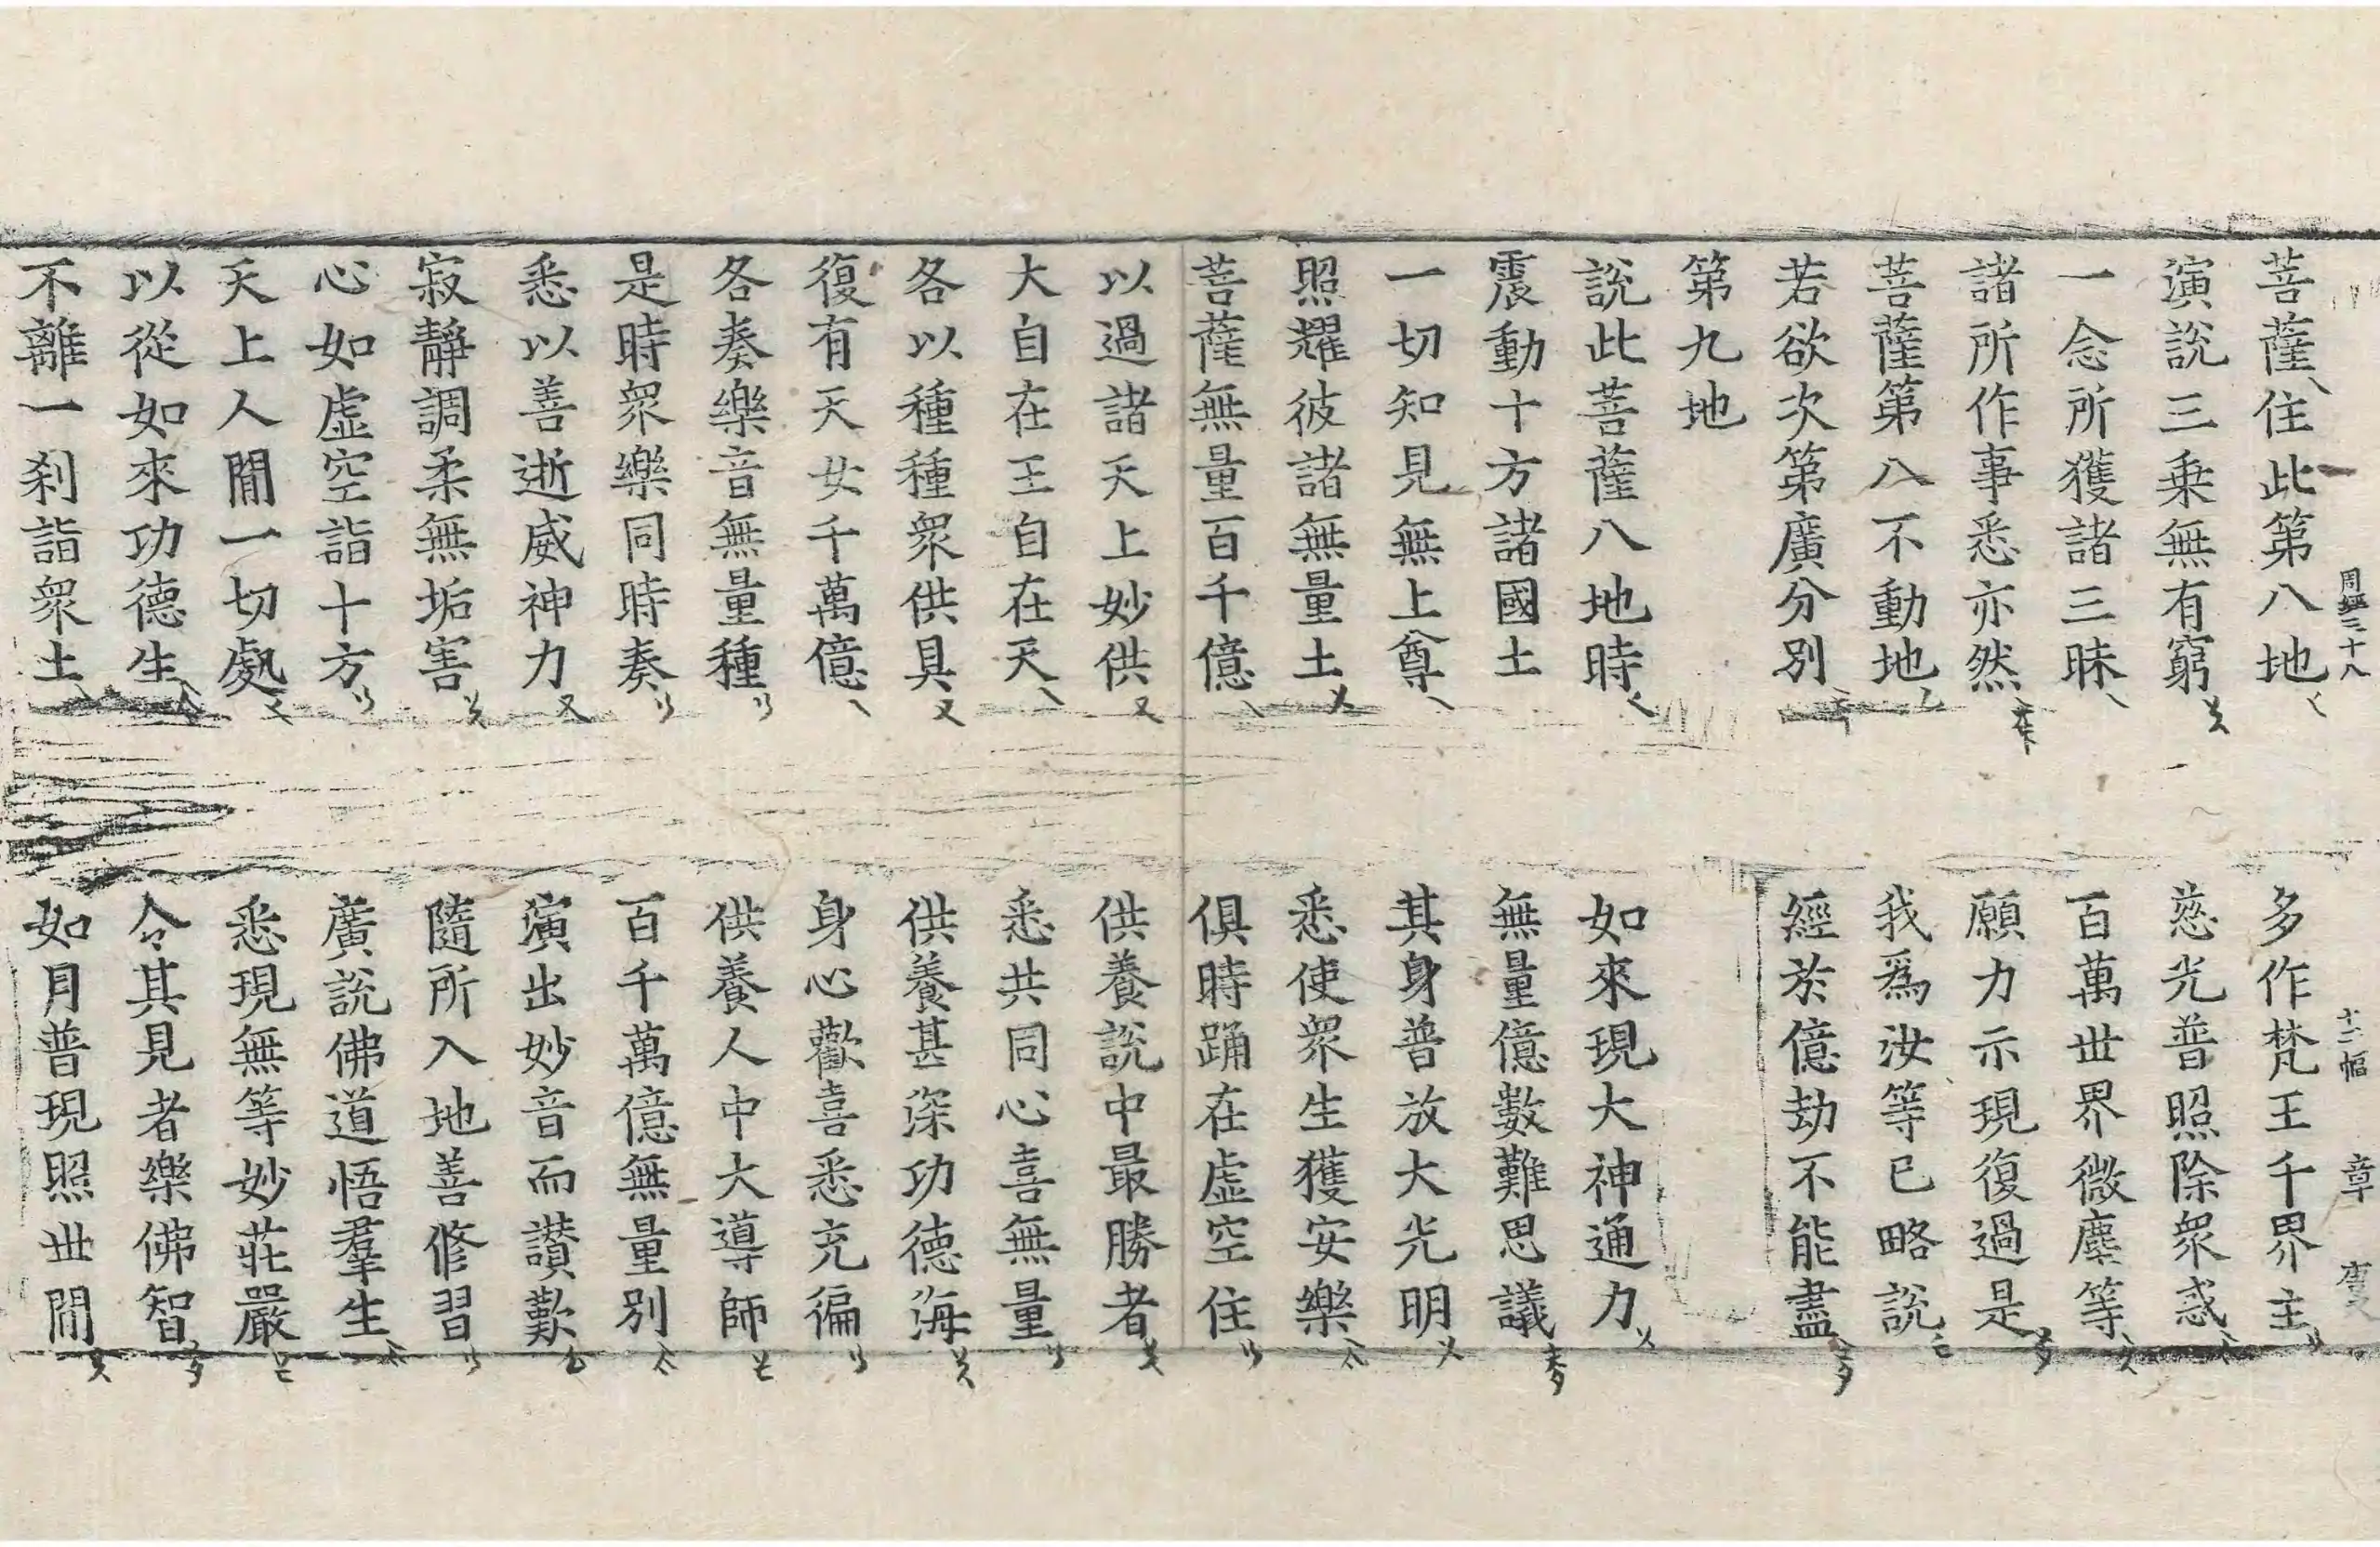 周經三十八 十二幅 章
菩薩住此第八地 多作梵王千界主
演說三乗無有窮 慈光普照除衆惑
一念所獲諸三昧 百萬世界微塵等
諸所作事悉亦然 願力示現復過是
菩薩第八不動地 我爲汝等已略說
若欲次第廣分別 經於億劫不能盡
第九地
說此菩薩八地時 如來現大神通力
震動十方諸國土 無量億數難思議
一切知見無上尊 其身普放大光明
照耀彼諸無量土 悉使衆生獲安樂
菩薩無量百千億 俱時踊在虛空住
以過諸天上妙供 供養說中最勝者
大自在王自在天 悉共同心喜無量
各以種種衆供具 供養甚深功德海
復有天女千萬億 身心歡喜悉充徧
各奏樂音無量種 供養人中大導師
是時衆樂同時奏 百千萬億無量別
悉以善逝威神力 演出妙音而讃歎
寂靜調柔無垢害 隨所入地善修習
心如虛空詣十方 廣說佛道悟羣生
天上人間一切處 悉現無等妙莊嚴
以從如來功德生 令其見者樂佛智
不離一刹詣衆土 如月普現照世間